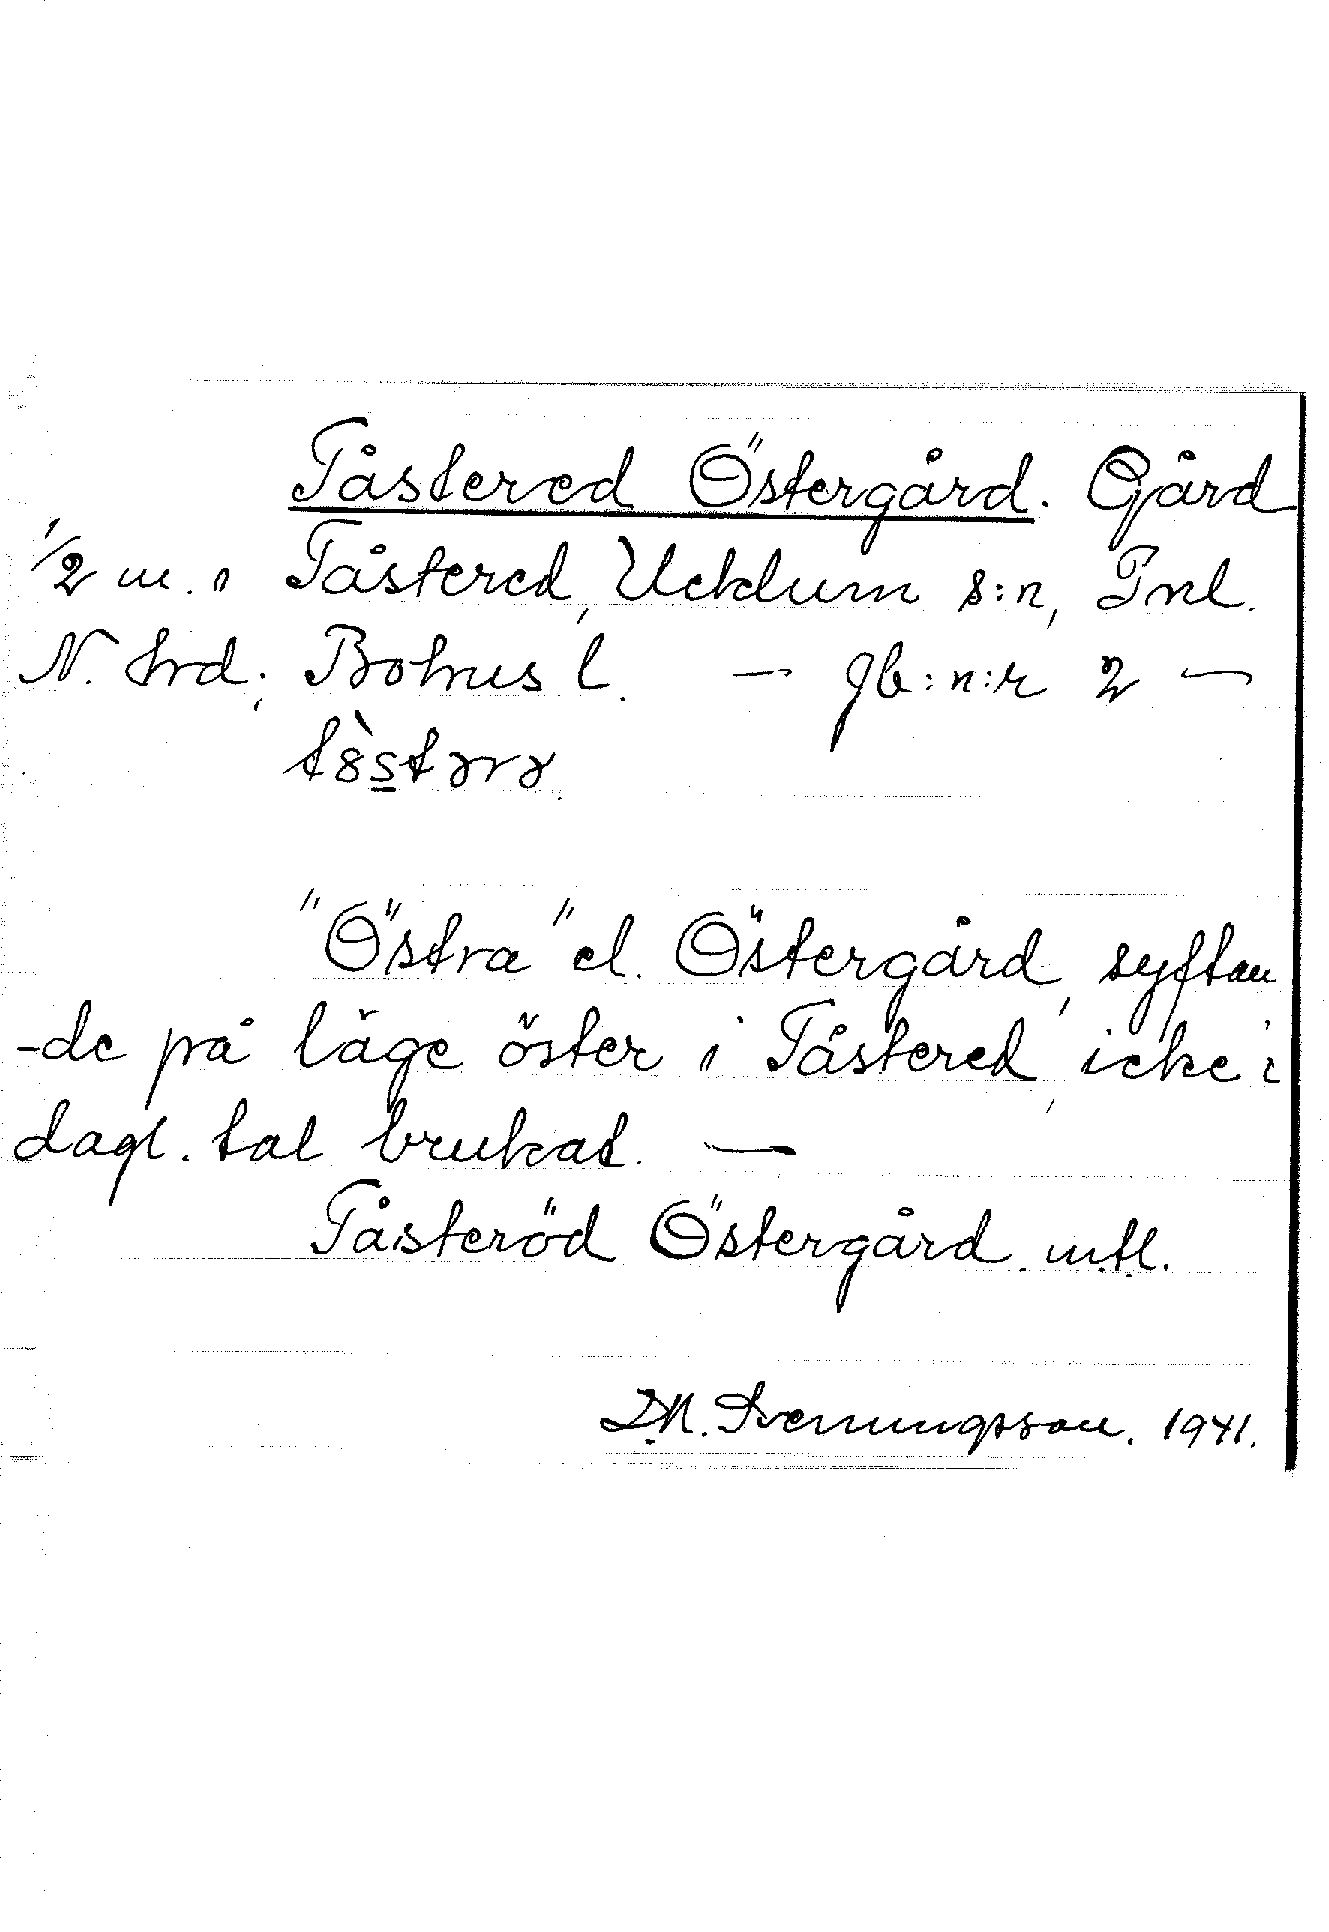 Tåstered Östergård. Gård
1/2 m. i Tåstered, Ucklum s:n, Inl.
N. hrd; Bohus l. — Jb:n:r 2 —
"Östra" el. Östergård, syftan
-de på läge öster i Tåstered, icke i
dagl. tal brukat. —
Tåsteröd Östergård. m.fl.
D.N. Svenningsson. 1941.